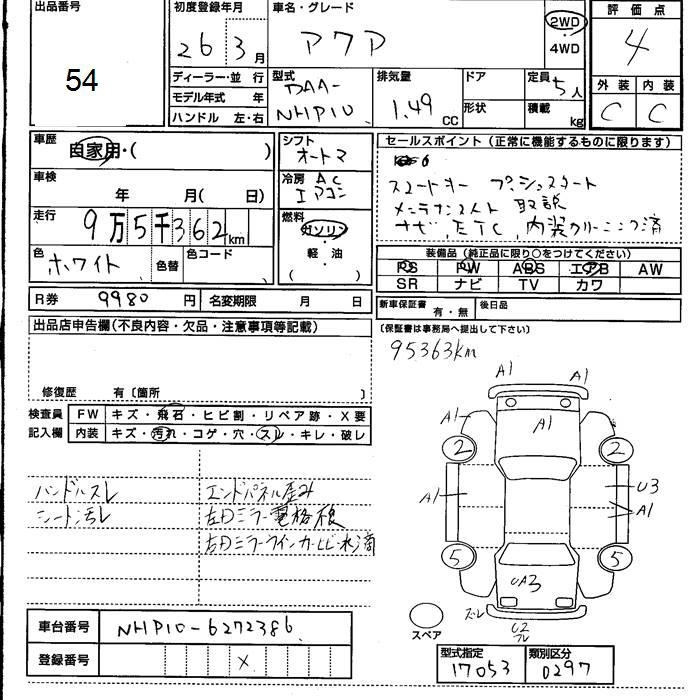 出品番号 初度登録年月 車名・グレード 評価点
54 26年3月 アクア 2WD・4WD 4
ディーラー・並行 型式 排気量 ドア 定員 外装 内装
モデル年式 年 DAA- 5人 C C
ハンドル 左・右 NHP10 1.49cc 形状 積載 kg
車歴 自家用・( ) シフト オートマ セールスポイント(正常に機能するものに限ります)
車検 年 月( 日) 冷房 AC エアコン スマートキー プッシュスタート
走行 9万5千362km 燃料 ガソリン・軽油・( ) メンテナンスノート 取説
ナビ,ETC,内装クリーニング済
色 ホワイト 色替 色コード 装備品(純正品に限り○をつけてください)
PS PW ABS エアB AW
SR ナビ TV カワ
R券 9980円 名変期限 月 日 新車保証書 有・無 後日品
出品店申告欄(不良内容・欠品・注意事項等記載) (保証書は事務局へ提出して下さい)
95363km
修復歴 有〔箇所 〕
検査員 FW キズ・飛石・ヒビ割・リペア跡・X要
記入欄 内装 キズ・汚れ・コゲ・穴・スレ・キレ・破レ
A1 A1
A1 A1 A1
2 2
A1 U3
A1
5 5
UA3
ズレ U2
スペア
ハンドルスレ エンドパネル歪み
シート汚レ 左Dミラー電格
右Dミラーウインカーヒビ・水滴
車台番号 NHP10-6272386
登録番号 X
型式指定 類別区分
17053 0297